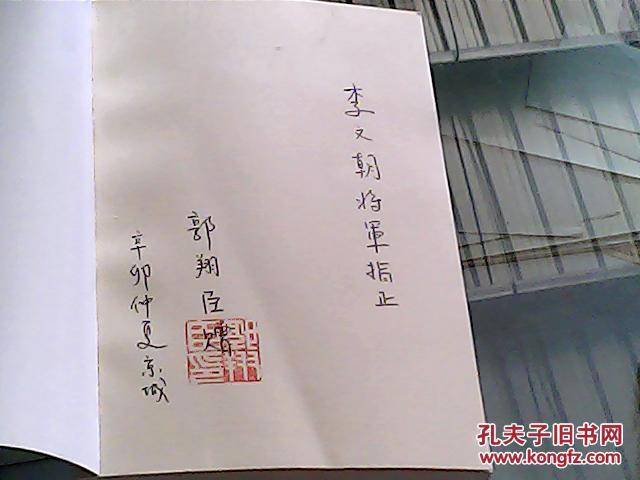 李文朝将軍指正
郭翔臣赠
辛卯仲夏京城
孔夫子旧书网
www.kongfz.com